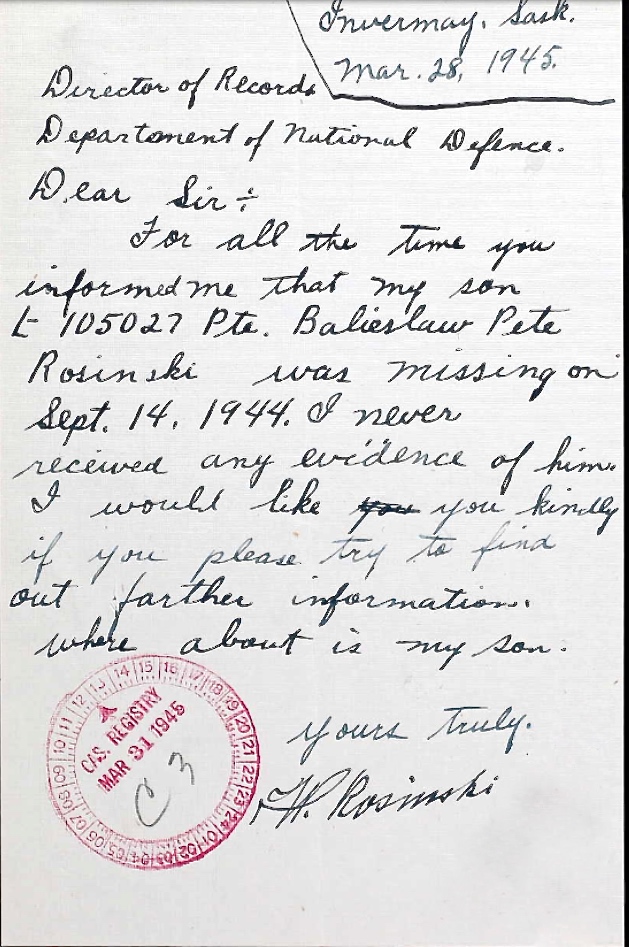 Invermay, Sask.
Mar. 28, 1945.
Director of Records
Department of National Defence.
Dear Sir÷
For all the time you
informed me that my son
L-105027 Pte. Balieslaw Pete
Rosinski was missing on
Sept. 14, 1944. I never
received any evidence of him.
I would like you you kindly
if you please try to find
out farther information.
where about is my son.
yours truly.
W. Rosinski
14 15 16 17 18 19 20 21 22 23 24 01 02 03 04 05 06 07 08 09 10 11 12 13
CAS. REGISTRY
MAR 31 1945
C3